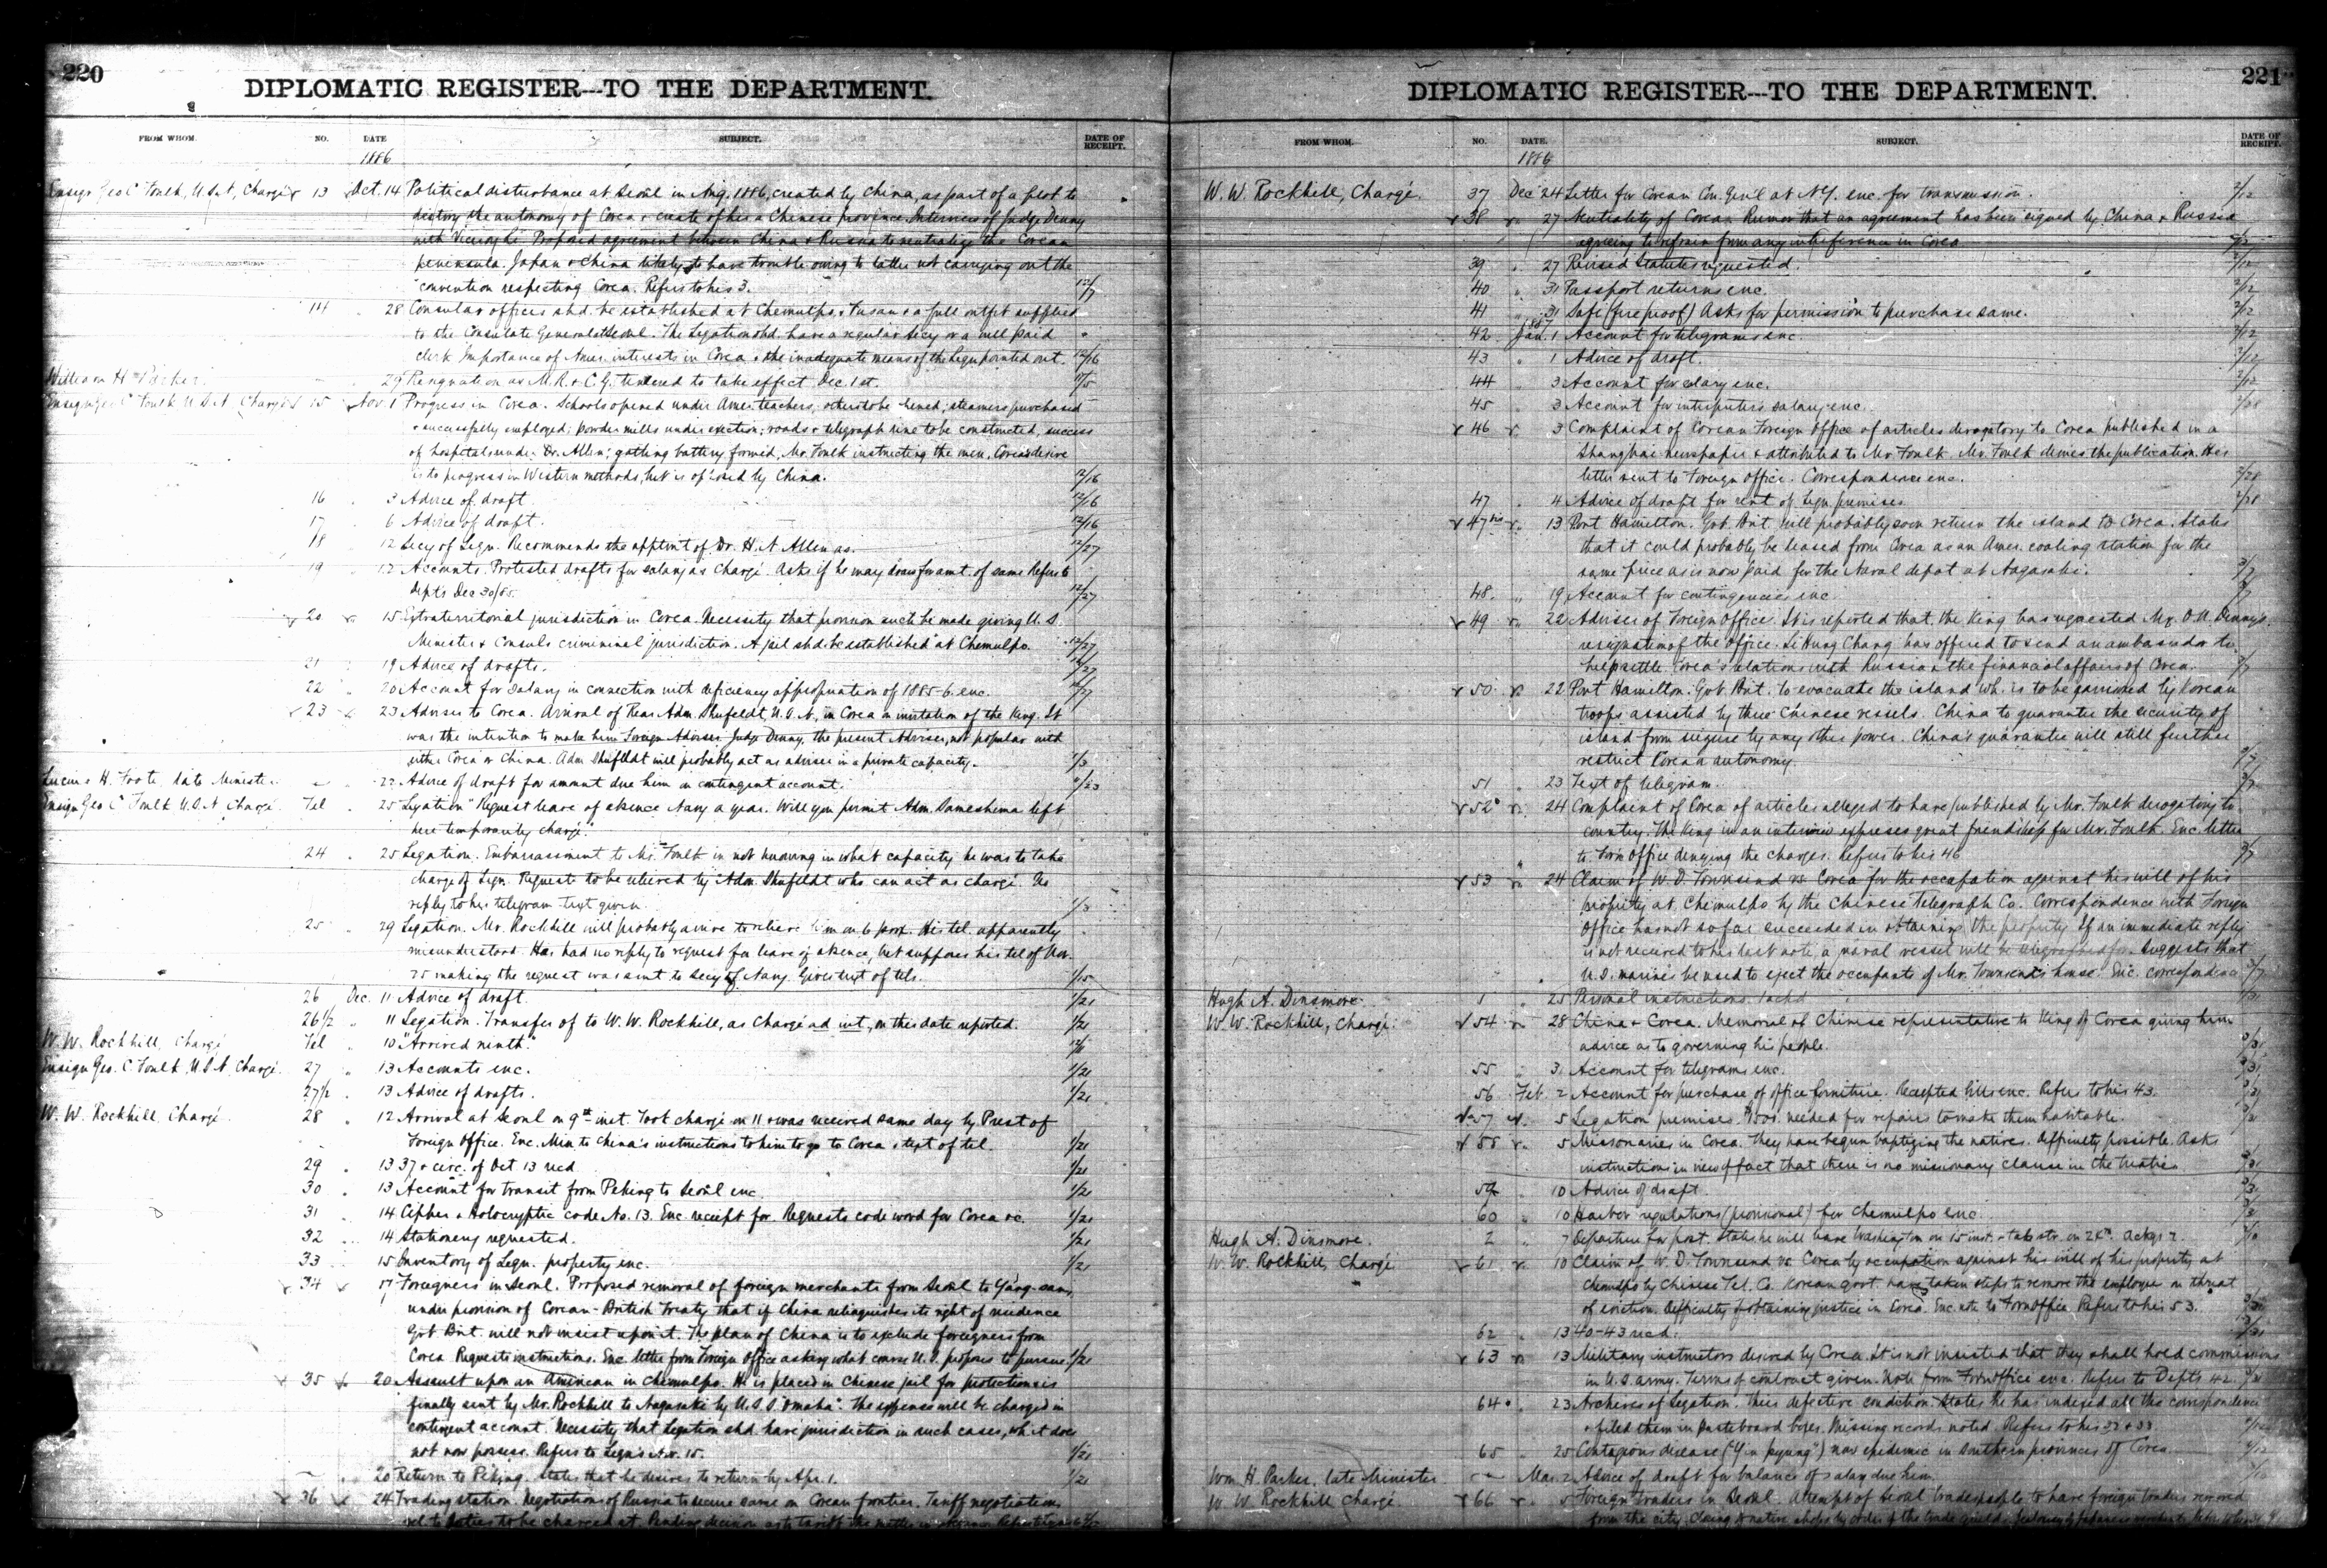 220
DIPLOMATIC REGISTER---TO THE DEPARTMENT.
FROM WHOM. NO. DATE SUBJECT. DATE OF RECEIPT.
1886
Ensign Geo C Foulk, U.S.N, Chargé 13 Oct. 14 Political disturbance at Seoul in Aug. 1886, created by China, as part of a plot to
destroy the autonomy of Corea & create of her a Chinese province. Interview of Judge Denny
with Viceroy Li. Proposed agreement between China & Russia to neutralize the Corean
peninsula. Japan & China likely to have trouble owing to latter not carrying out the
convention respecting Corea. Refers to his 3. 12/7
14 " 28 Consular offices shd. be established at Chemulpo, Fusan & a full outfit supplied
to the Consulate General at Seoul. The Legation shd. have a regular Secy or a well paid
clerk. Importance of Amer. interests in Corea & the inadequate means of the Legn pointed out. 12/16
William H Parker. 29 Resignation as M.R. & C.G. tendered to take effect Dec. 1st.
Ensign Geo C Foulk U.S.N Chargé 15 Nov 1 Progress in Corea. Schools opened under Amer. teachers, others to be hired; steamers purchased
& successfully employed; powder mills under erection; roads & telegraph line to be constructed, success
of hospital under Dr. Allen; gatling battery formed, Mr. Foulk instructing the men. Corea's desire
is to progress in Western methods, but is opposed by China. 12/16
16 . 3 Advice of draft 12/16
17 . 6 Advice of draft. 12/16
18 12 Secy of Legn. Recommends the apptmt of Dr. H. N Allen as. 12/27
19 . 12 Accounts. Protested drafts for salary as Chargé. Asks if he may draw for amt. of same Refers to
Dept's Dec 30/85. 12/27
20 15 Extraterritorial jurisdiction in Corea. Necessity that provision such be made giving U.S.
Minister & Consuls crimininal jurisdiction. A jail shd. be established at Chemulpo. 12/27
21 19 Advice of drafts. 12/27
22 " 20 Account for salary in connection with deficiency appropriation of 1885-6 enc. 12/27
23 23 Adviser to Corea. Arrival of Rear Adm. Shufeldt, U.S.N, in Corea on invitation of the King. It
was the intention to make him Foreign Adviser. Judge Denny, the present Adviser, not popular with
either Corea or China. Adm Shufeldt will probably act as adviser in a private capacity. 1/3
Lucius H. Foote, late Minister - 22 Advice of draft for amount due him on contingent account.
Ensign Geo C Foulk U.S.N Chargé Tel 25 Legation "Request leave of absence Navy a year. Will you permit Adm. left
here temporarily chargé."
24 . 25 Legation. Embarrassment to Mr. Foulk in not knowing in what capacity he was to take
charge of Legn. Requests to be relieved by Adm. Shufeldt who can act as chargé. No
reply to his telegram text given. 1/3
25 . 29 Legation. Mr. Rockhill will probably arrive to relieve him on 6 prox. His tel. apparently
misunderstood. Has had no reply to request for leave of absence, but supposes his tel of Nov.
25 making the request was sent to Secy of Navy. Gives text of tels. 1/15
26 Dec. 11 Advice of draft. 1/21
26 1/2 " 11 Legation. Transfer of to W. W. Rockhill, as Chargé ad int, on this date reported. 1/21
W. W. Rockhill, Chargé Tel " 10 "Arrived ninth."
Ensign Geo. C. Foulk, U.S.N, Chargé. 27 " 13 Accounts enc. 1/21
27 1/2 13 Advice of drafts. 1/21
W. W. Rockhill, Chargé. 28 " 12 Arrival at Seoul on 9th inst. Took charge on 11 & was received same day by Prest of
Foreign Office. Enc. Min to China's instructions to him to go to Corea & text of tel. 1/21
29 . 13 37 & circ. of Oct 13 recd 1/21
30 . 13 Account for transit from Peking to Seoul enc. 1/21
31 . 14 Cipher & Holocryptic code No. 13. Enc receipt for. Requests code word for Corea &c. 1/21
32 . 14 Stationery requested. 1/21
33 15 Inventory of Legn. property enc. 1/21
34 17 Foreigners in Seoul. Proposed removal of foreign merchants from Seoul to Yang-
under provision of Corean-British treaty that if China relinquishes its right of residence
Govt Brit. will not insist upon it. The plan of China is to exclude foreigners from
Corea. Requests instructions. Enc. letter from Foreign Office asking what course U.S. proposes to pursue. 1/21
35 20 Assault upon an American in Chemulpo. He is placed in Chinese jail for protection & is
finally sent by Mr. Rockhill to Nagasaki by U.S.S. "Omaha". The expenses will be charged in
contingent account. Necessity that Legation shd. have jurisdiction in such cases, wh. it does
not now possess. Refers to Legn's No. 15. 1/21
. 20 Return to Peking. States that he desires to return by Apr. 1. 1/21
36 24 Trading station. Negotiations of Russia to secure same on Corean frontier. Tariff negotiations
rel. to duties to be charged at. Pending decision as to tariff the matter in
221
DIPLOMATIC REGISTER---TO THE DEPARTMENT.
FROM WHOM. NO. DATE. SUBJECT. DATE OF RECEIPT.
1886
W. W. Rockhill, Chargé. 37 Dec 24 Letter for Corean Con. Gen'l at N.Y. enc. for transmission. 2/12
38 27 Neutrality of Corea. Rumor that an agreement has been signed by China & Russia
agreeing to refrain from any interference in Corea 2/12
39 . 27 Revised Statutes requested. 2/12
40 " 31 Passport returns enc. 2/12
41 " 31 Safe (fire proof) Asks for permission to purchase same. 2/12
1887
42 Jan. 1 Account for telegrams enc. 2/12
43 " 1 Advice of draft. 2/12
44 " 3 Account for salary enc. 2/12
45 3 Account for interpreter's salary enc. 2/28
46 3 Complaint of Corean Foreign Office of articles derogatory to Corea published in a
Shanghai newspaper & attributed to Mr Foulk. Mr. Foulk denies the publication. His
letter sent to Foreign Office. Correspondence enc. 2/28
47 . 4 Advice of draft for rent of Legn. premises 2/28
47 bis 13 Port Hamilton. Govt Brit. will probably soon return the island to Corea. States
that it could probably be leased from Corea as an Amer. coaling station for the
same price as is now paid for the Naval depot at Nagasaki. 3/7
48. " 19 Account for contingencies enc. 3/7
49 22 Adviser of Foreign Office. It is reported that the King has requested Mr. O.N. Denny's
resignation of the office. Li Hung Chang has offered to send an ambassador to
help settle Corea's relations with Russia & the financial affairs of Corea. 3/7
50 22 Port Hamilton. Govt Brit. to evacuate the island wh. is to be garrisoned by Korean
troops assisted by three Chinese vessels. China to guarantee the security of
island from seizure by any other power. China's guarantee will still further
restrict Corea's autonomy. 3/7
51 " 23 Text of telegram. 3/7
52 24 Complaint of Corea of articles alleged to have published by Mr. Foulk derogatory to
country. The King in an interview expresses great friendship for Mr. Foulk. Enc. letter
to Forn Office denying the charges. Refers to his 46 3/7
53 24 Claim of W. D. Townsend vs. Corea for the occupation against his will of his
property at Chemulpo by the Chinese Telegraph Co. Correspondence with Foreign
Office has not so far succeeded in obtaining the property. If an immediate reply
is not received to his last note, a naval vessel will be telegraphed for. Suggests that
U.S. marines be used to eject the occupants of Mr. Townsend's house. Enc. correspondence 3/7
Hugh A. Dinsmore. 1 " 25 Personal instructions. Ackd
W. W. Rockhill, Chargé. 54 28 China & Corea. Memorial of Chinese representative to King of Corea giving him
advice as to governing his people. 3/31
55 Account for telegrams enc. 3/31
56 Feb. 2 Account for purchase of office furniture. Receipted bills enc. Refers to his 43. 3/31
57 5 Legation premises. $1500. needed for repairs to make them habitable.
58 5 Missionaries in Corea. They have begun baptizing the natives. Difficulty possible. Asks
instructions in view of fact that there is no missionary clause in the treaties. 3/31
59 " 10 Advice of draft. 3/31
60 " 10 Harbor regulations (provisional) for Chemulpo enc. 3/31
Hugh A. Dinsmore. 2 " 7 Departure for post. States he will leave Washington on 15 inst. & take str. on 24th. Ackgs 2.
W. W. Rockhill, Chargé 61 10 Claim of W. D. Townsend vs. Corea by occupation against his will of his property at
Chemulpo by Chinese Tel. Co. Korean govt. have taken steps to remove the employee on threat
of eviction. Difficulty of obtaining justice in Corea. Enc. note to Forn Office. Refers to his 53. 3/31
62 " 13 40-43 recd. 3/31
63 13 Military instructors desired by Corea. It is not insisted that they shall hold commissions
in U.S. army. Terms of contract given. Note from Forn Office enc. Refers to Depts 42. 3/31
64 23 Archives of Legation. Their defective condition. States he has indexed all the correspondence
& filed them in pasteboard boxes. Missing records noted. Refers to his & 33.
65 25 Contagious disease ("Yin pyung") now epidemic in southern provinces of Corea. 4/12
Wm H. Parker, late Minister. Mar. 2 Advice of draft for balance of salary due him.
W. W. Rockhill Chargé. 66 5 Foreign traders in Seoul. Attempt of Seoul tradespeople to have foreign traders removed
from the city. Closing of native shops by order of the trade guilds.